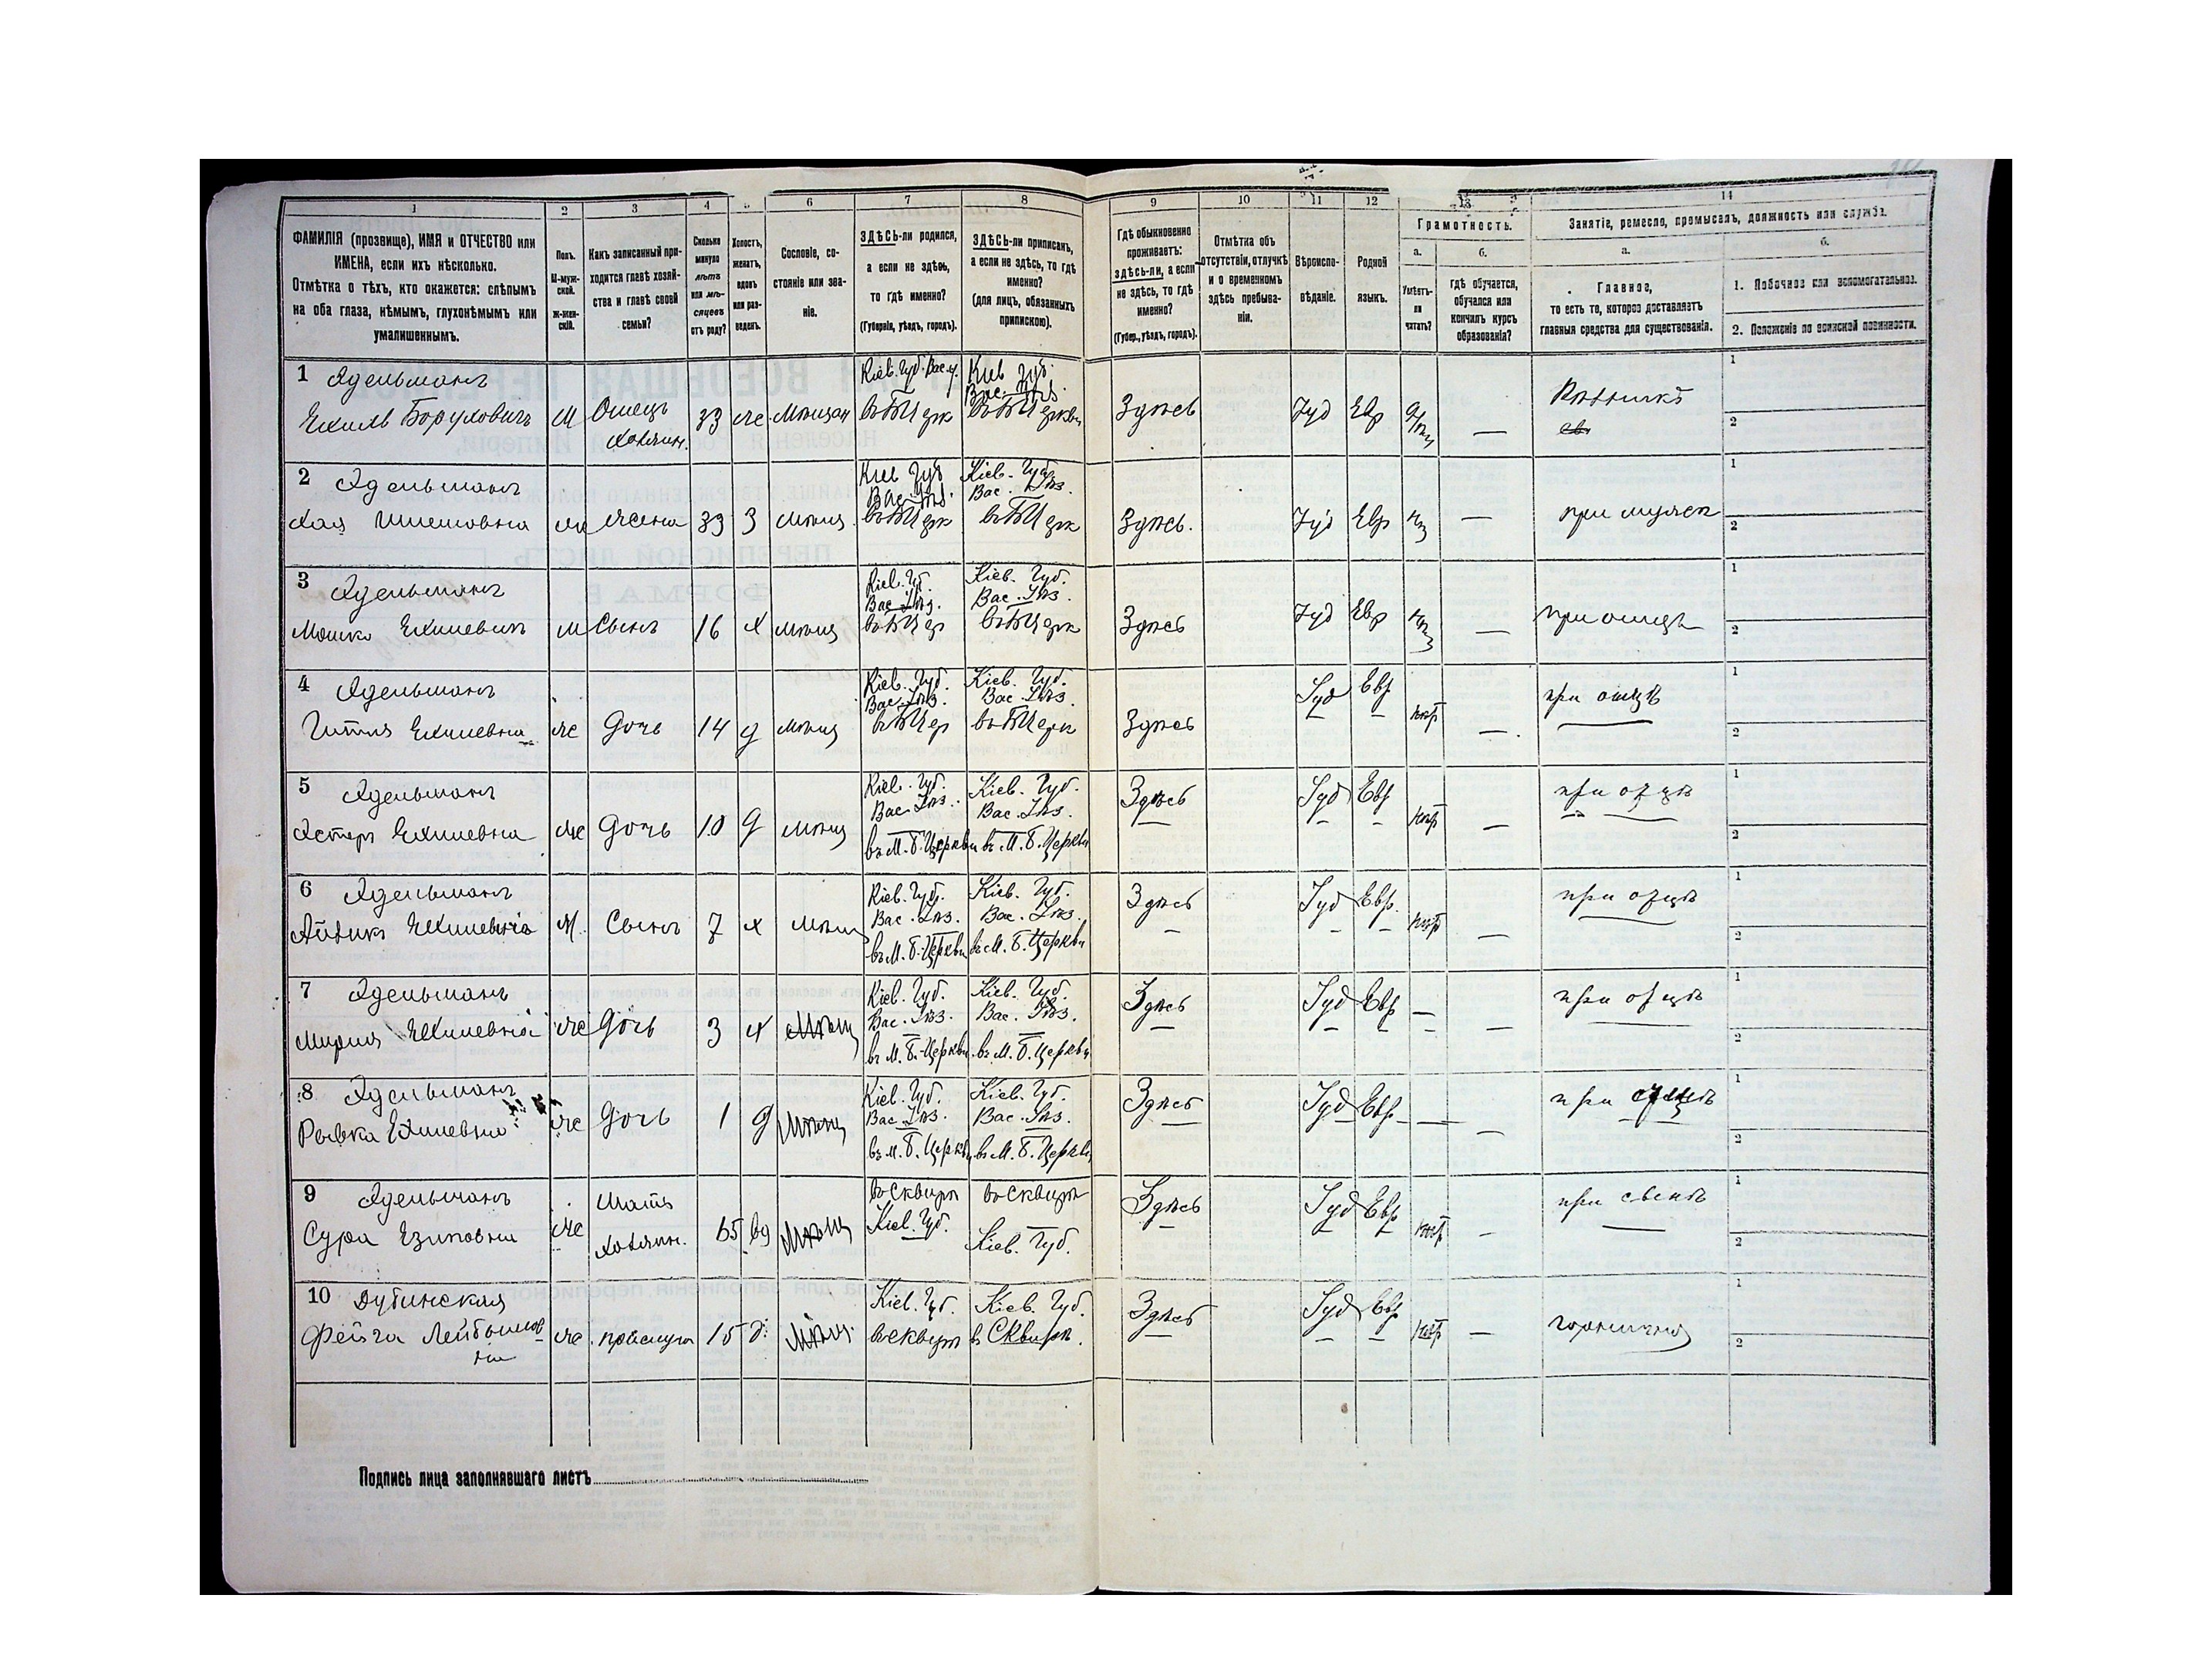 1 2 3 4 5 6 7 8 9 10 11 12 13 14
ФАМИЛІЯ (прозвище), ИМЯ и ОТЧЕСТВО или
ИМЕНА, если ихъ нѣсколько.
Отмѣтка о тѣхъ, кто окажется: слѣпымъ
на оба глаза, нѣмымъ, глухонѣмымъ или
умалишеннымъ.
Полъ.
М-муж-
ской.
ж-жен-
скій.
Какъ записанный при-
ходится главѣ хозяй-
ства и главѣ своей
семьи?
Сколько
минуло
лѣтъ
или мѣ-
сяцевъ
отъ роду?
Холостъ,
женатъ,
вдовъ
или раз-
веденъ.
Сословіе, со-
стояніе или зва-
ніе.
ЗДѢСЬ-ли родился,
а если не здѣсь,
то гдѣ именно?
(Губернія, уѣздъ, городъ).
ЗДѢСЬ-ли приписанъ,
а если не здѣсь, то гдѣ
именно?
(для лицъ, обязанныхъ
припискою).
Гдѣ обыкновенно
проживаетъ:
здѣсь-ли, а если
не здѣсь, то гдѣ
именно?
(Губер., уѣздъ, городъ).
Отмѣтка объ
отсутствіи, отлучкѣ
и о временномъ
здѣсь пребыва-
ніи.
Вѣроиспо-
вѣданіе.
Родной
языкъ.
Грамотность.
а.
Умѣетъ-
ли
читать?
б.
гдѣ обучается,
обучался или
кончилъ курсъ
образованія?
Занятіе, ремесло, промыселъ, должность или служба.
а.
Главное,
то есть то, которое доставляетъ
главныя средства для существованія.
б.
1. Побочное или вспомогательное.
2. Положеніе по воинской повинности.
1 Эдельманъ
Ехиль Боруховичъ М Отецъ хозяин. 33 же Мѣщан Кіев. Губ. Вас. у. въ Б Церк Кіев Губ. въ Б Церкви Здѣсь Іуд Евр —
2 Эдельманъ
Хая жена 33 З мѣщ. Кіев Губ въ Б Церк Кіев. Губ. Вас. Уѣз. въ Б Церк Здѣсь. Іуд Евр — при мужѣ
3 Эдельманъ
Мошко Ехилевич М Сынъ 16 х мѣщ Кіев. Губ. Вас. Уѣз. въ Б Цер Кіев. Губ. Вас. Уѣз. въ Б Церк Здѣсь Іуд Евр — при отцѣ
4 Эдельманъ
Гитля Ехилевна же Дочь 14 д мѣщ Кіев. Губ. Вас. Уѣз. въ Б Цер Кіев. Губ. Вас. Уѣз. въ Б Церк Здѣсь Іуд Евр — при отцѣ
5 Эдельманъ
Эстеръ Ехилевна же Дочь 10 д мѣщ Кіев. Губ. Вас. Уѣз. въ М. Б. Церкви Кіев. Губ. Вас. Уѣз. въ М. Б. Церкви Здѣсь Іуд Евр — при отцѣ
6 Эдельманъ
Айзикъ М. Сынъ 7 х мѣщ Кіев. Губ. Вас. Уѣз. въ М. Б. Церкви Кіев. Губ. Вас. Уѣз. въ М. Б. Церкви Здѣсь Іуд Евр. — при отцѣ
7 Эдельманъ
Миріля Ехилевна же Дочь 3 Мѣщ Кіев. Губ. Вас. Уѣз. въ М. Б. Церкви Кіев. Губ. Вас. Уѣз. въ М. Б. Церкви Здѣсь Іуд Евр — — при отцѣ
8 Эдельманъ
Рывка Ехилевна же Дочь 1 д мѣщ Кіев. Губ. Вас. Уѣз. въ М. Б. Церкви Кіев. Губ. Вас. Уѣз. въ М. Б. Церкви Здѣсь Іуд Евр — — при отцѣ
9 Эдельманъ
Сура же Мать хозяин. 65 вд Мѣщ въ Сквирѣ Кіев. Губ. въ Сквирѣ Кіев. Губ. Здѣсь Іуд Евр — при сынѣ
10 Дубинская
Фейга Лейбышов-
на же прислуга 15 д. Мѣщ. Кіев. Губ. въ Сквирѣ Кіев. Губ. в Сквирѣ. Здѣсь Іуд Евр — горничная
Подпись лица заполнявшаго листъ